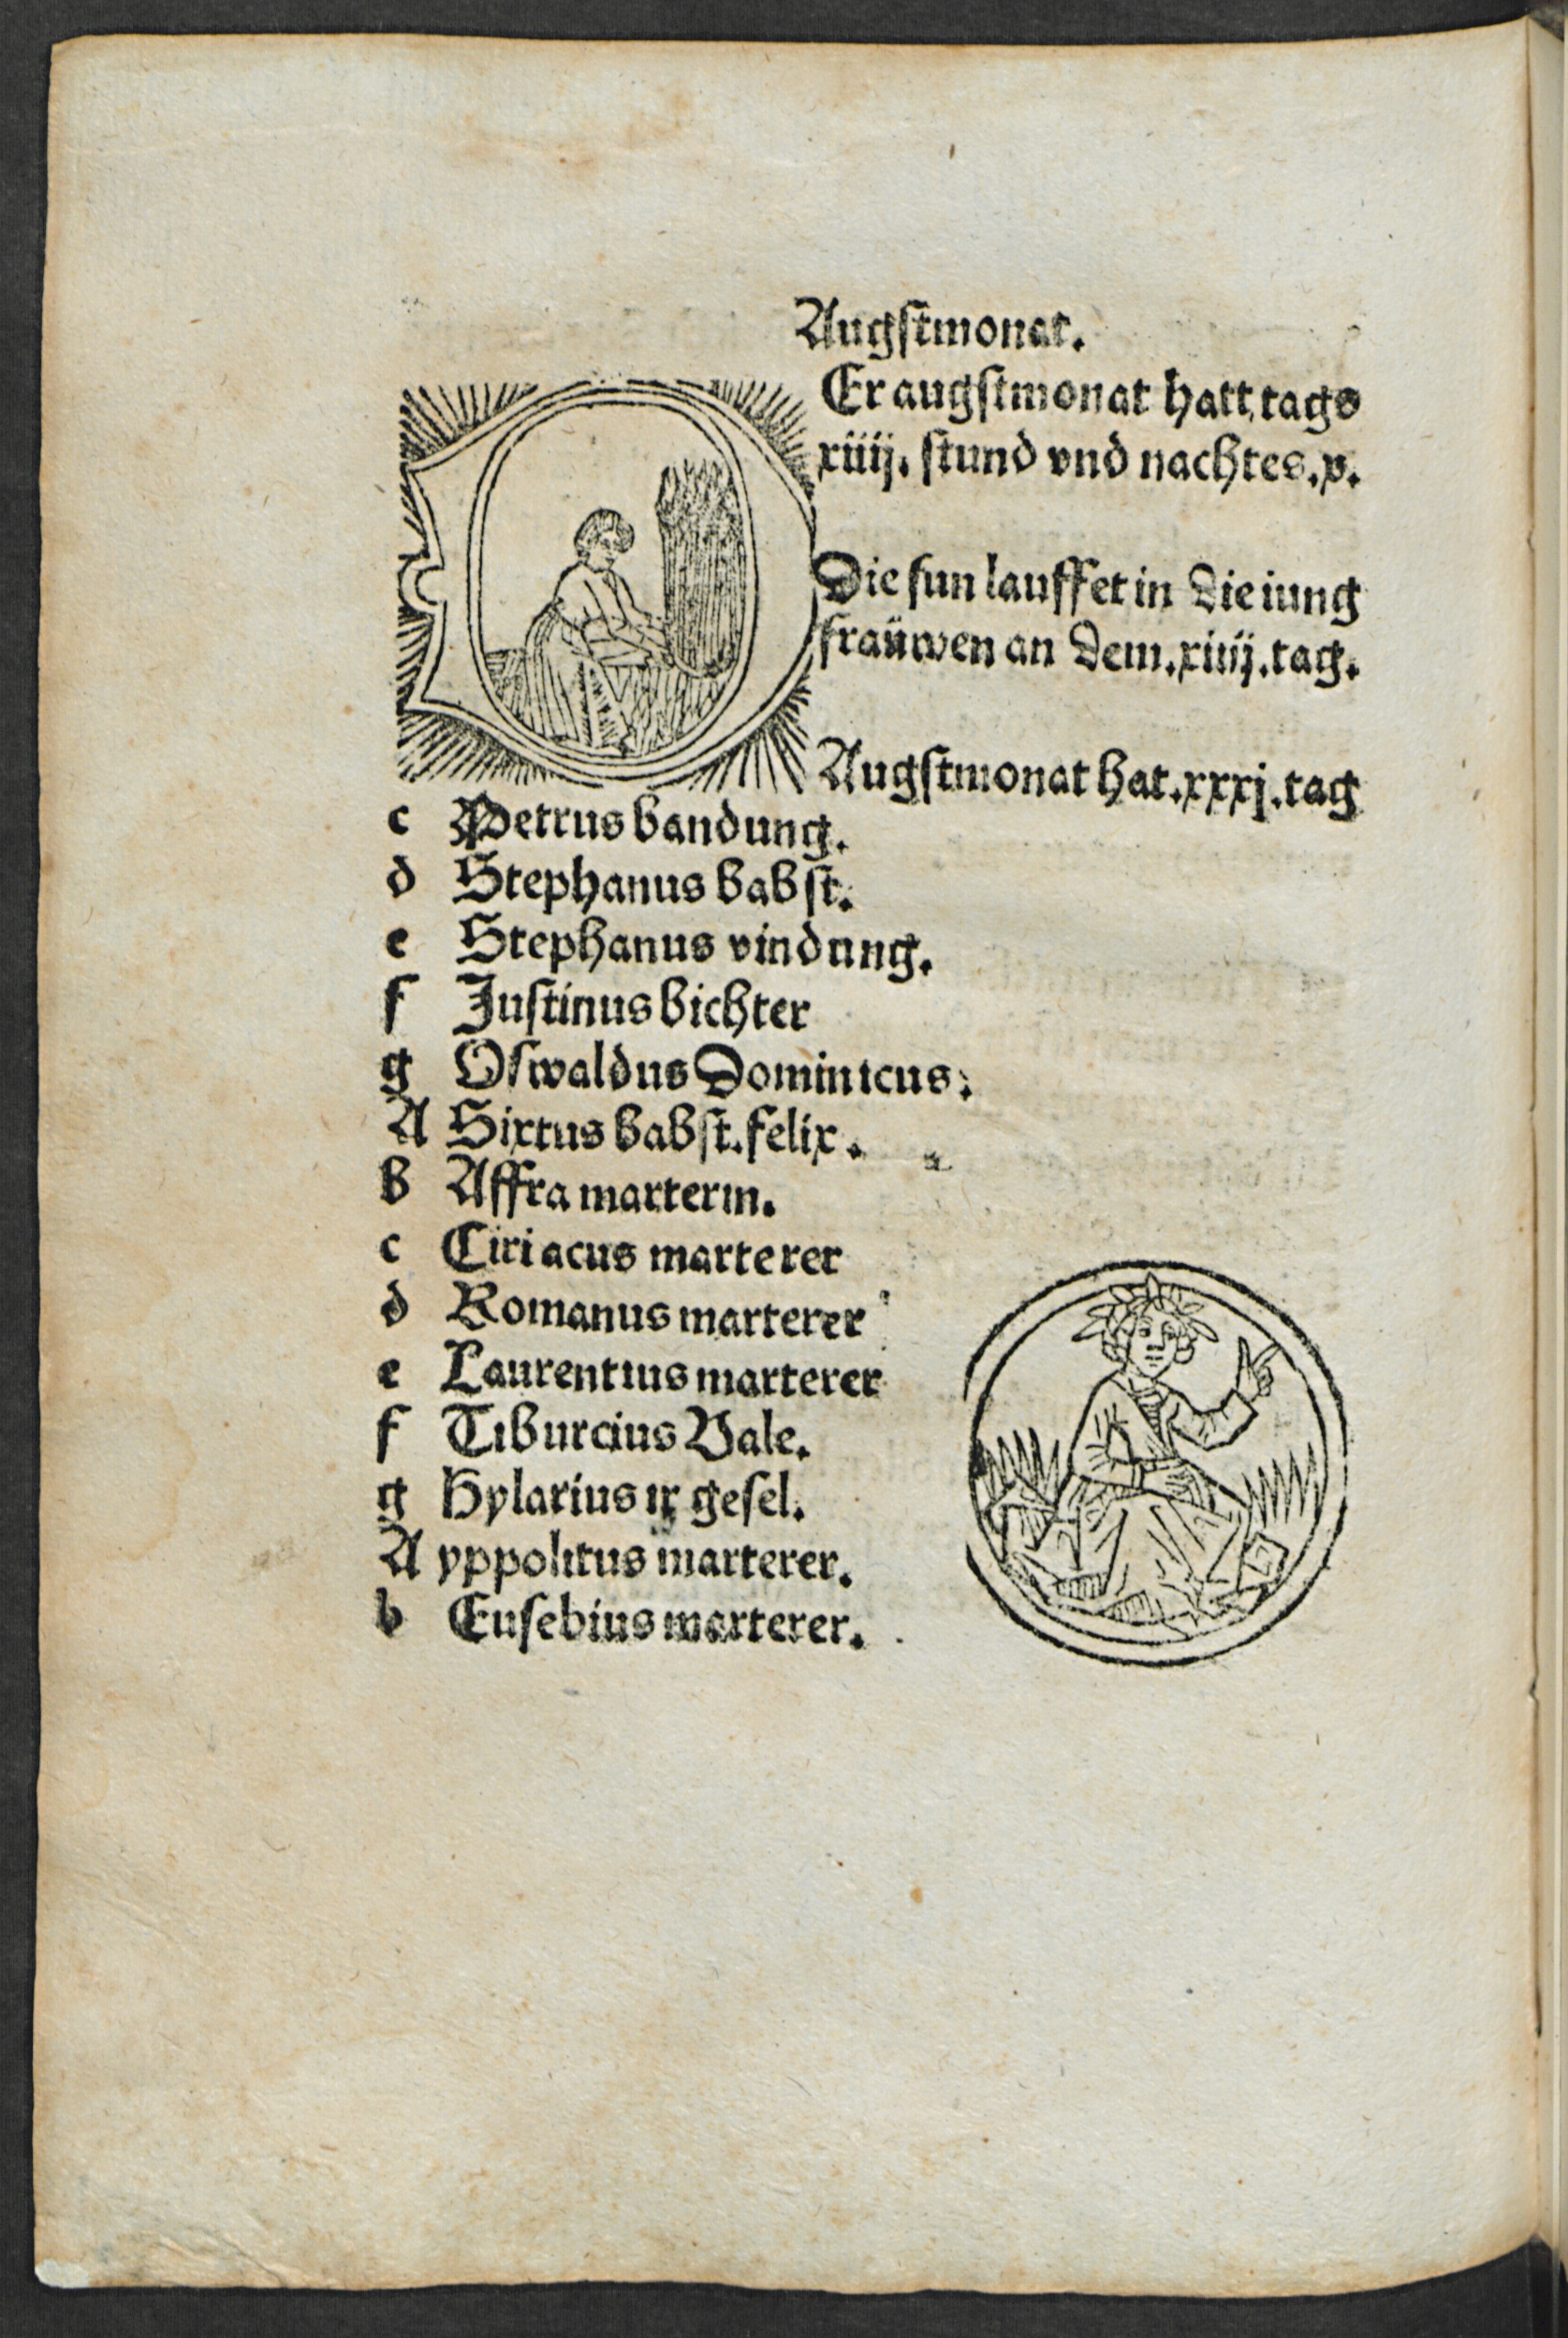 Augſtmonat.
Er augſtmonat hatt tags
xiiij. ſtund vnd nachtes .x.
Die ſun lauffet in die iung
fraüwen an dem .xiiij. tag.
Augſtmonat hat .xxxj. tag
c Petrus bandung.
d Stephanus babſt.
e Stephanus vindung.
f Juſtinus bichter
g Oſwaldus Dominicus.
A Sixtus babſt. felix.
b Affra marterin.
c Ciriacus marterer
d Romanus marterer
e Laurentius marterer
f Tiburcius Vale.
g Hylarius ir geſel.
A yppolitus marterer.
b Euſebius marterer.